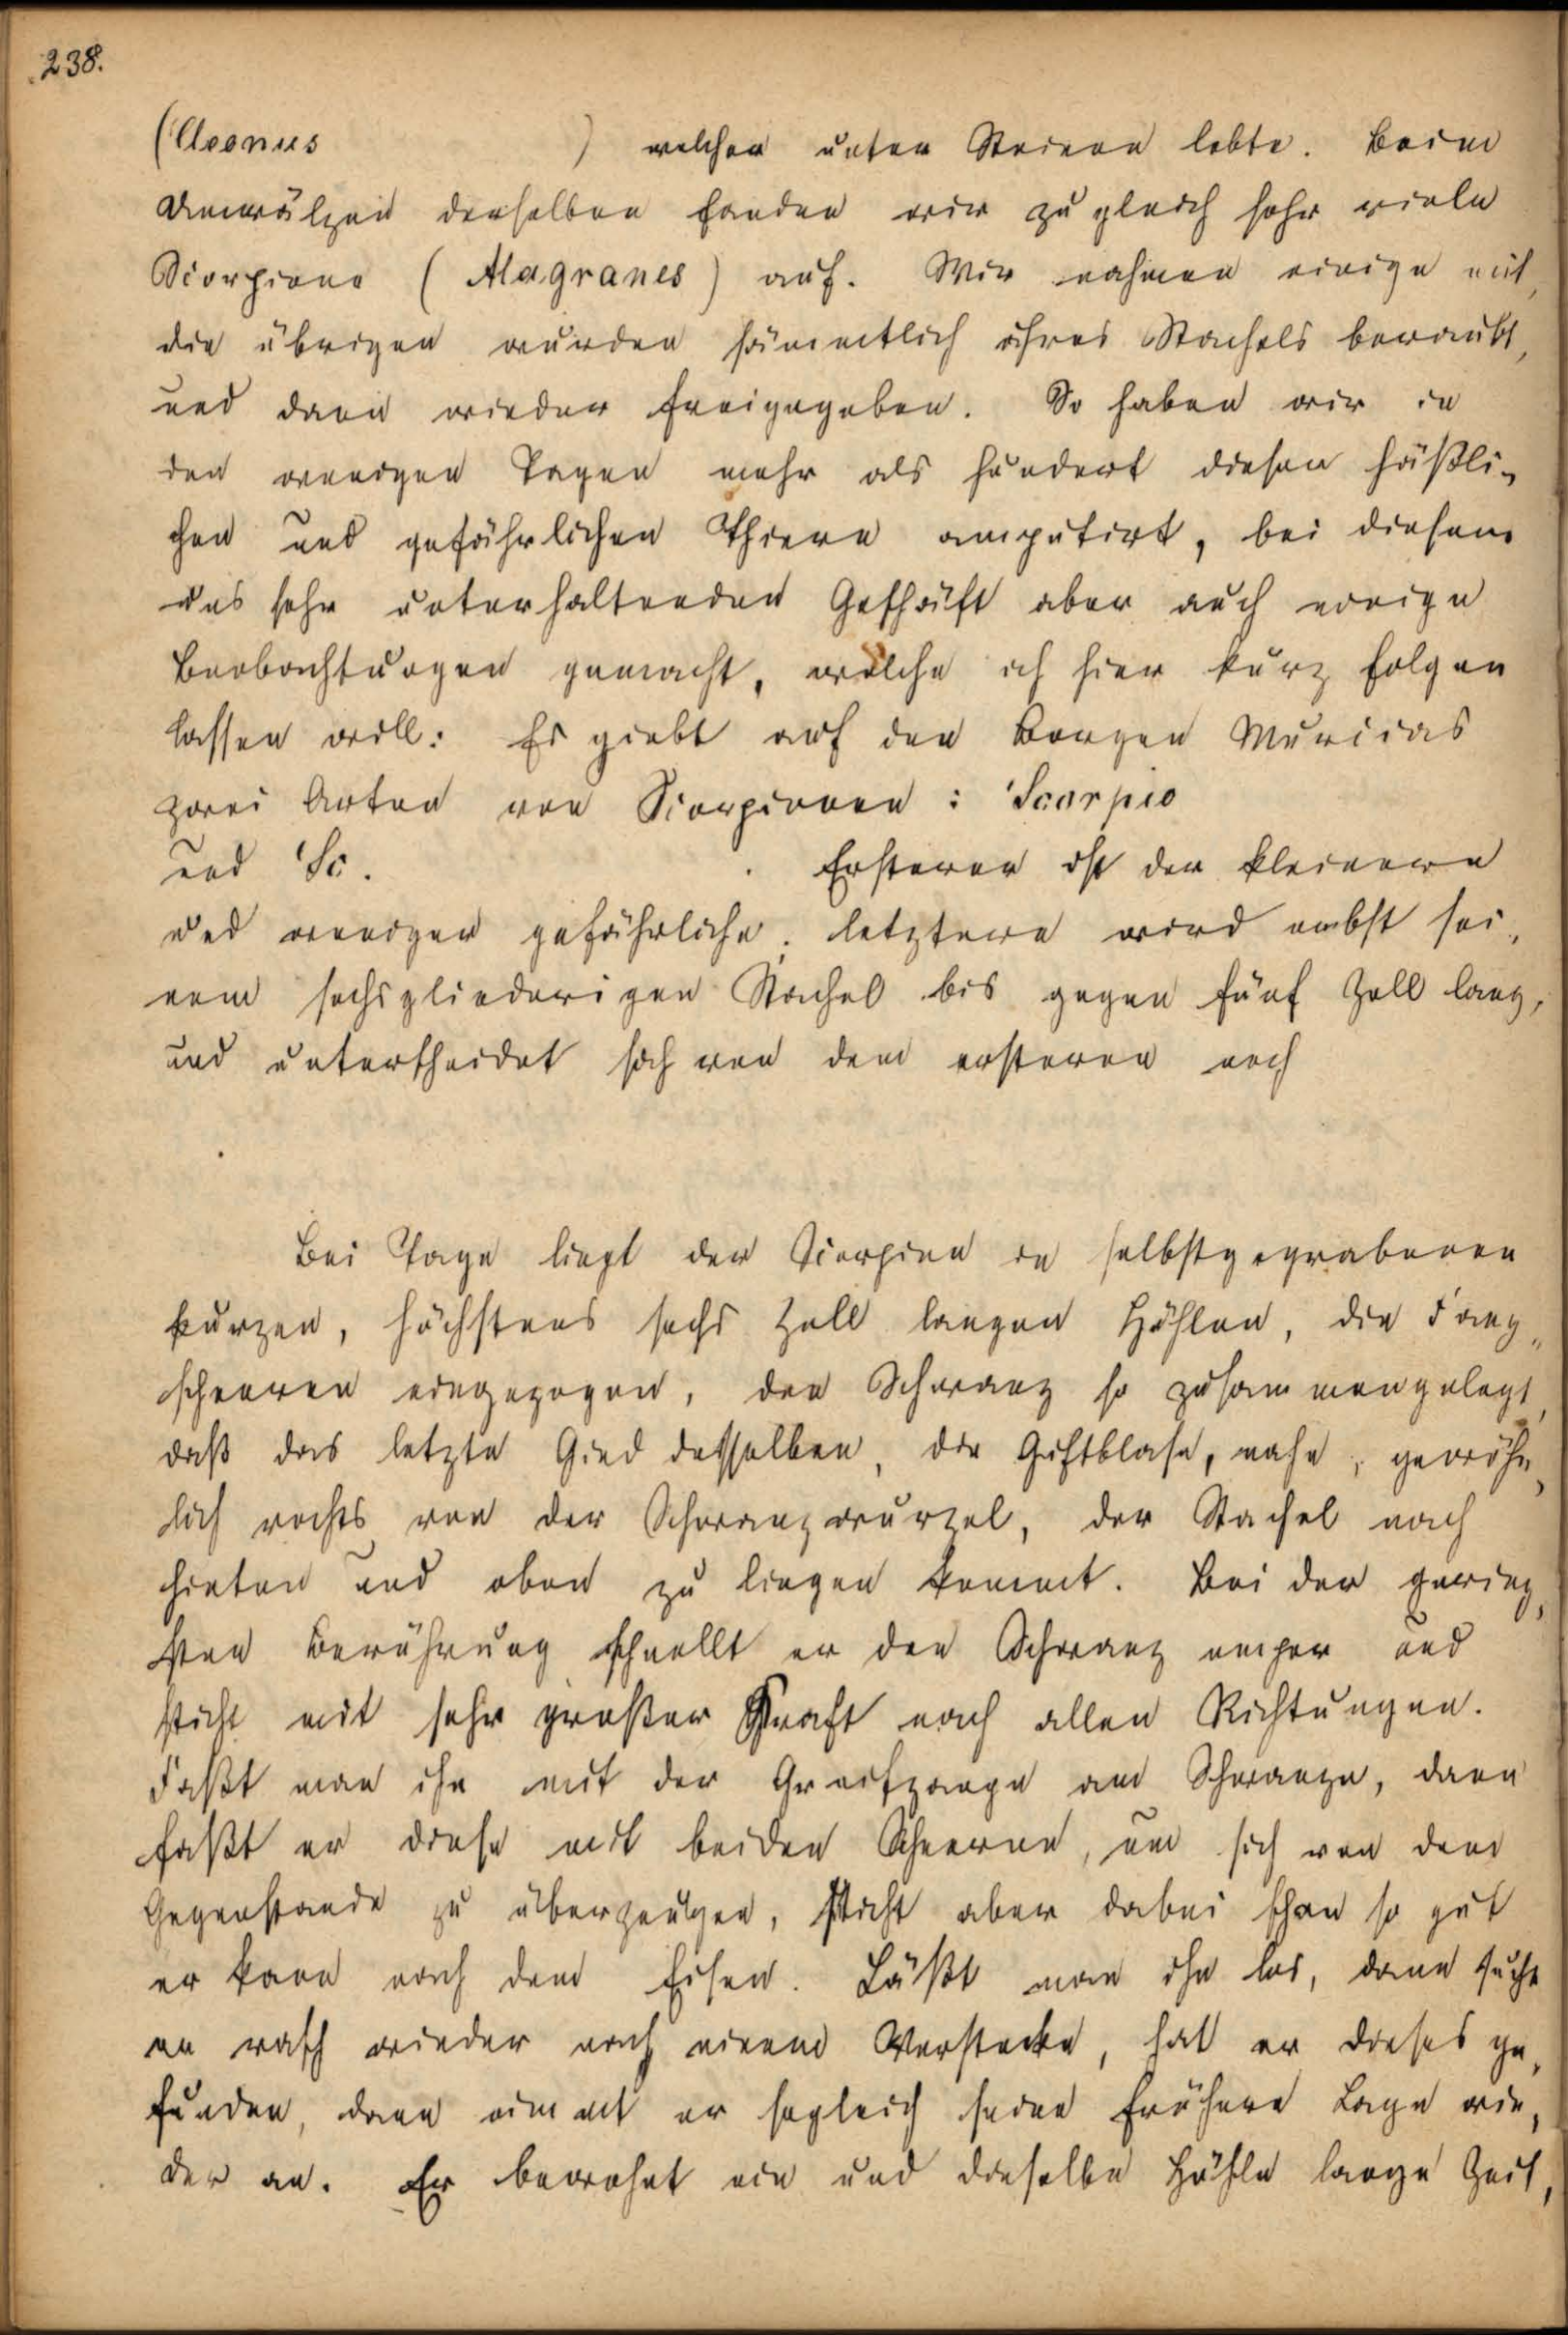 238.
(Cleonus ) welcher unter Steinen lebte. Beim
Umwälzen derselben fanden wir zugleich sehr viele
Scorpione (Alagranes) auf. Wir nahmen einige mit,
die übrigen wurden sämmtlich ihres Stachels beraubt,
und dann wieder freigegeben. So haben wir in
den wenigen Tagen mehr als hundert dieser häßli-
chen und gefährlichen Thiere amputirt, bei diesem
uns sehr unterhaltenden Geschäft aber auch einige
Beobachtungen gemacht, welche ich hier kurz folgen
lassen will: Es giebt auf den Bergen Murcias
zwei Arten von Scorpionen: Scorpio
und Sc. . Ersterer ist der kleinere
und weniger gefährliche, letzterer wird nebst sei-
nem sechsgliederigen Stachel bis gegen fünf Zoll lang,
und unterscheidet sich von dem ersteren noch
Bei Tage liegt der Scorpion in selbstgegrabenen
kurzen, höchstens sechs Zoll langen Höhlen, die Fang-
scheeren eingezogen, den Schwanz so zusammengelegt,
daß das letzte Gied desselben, die Giftblase, nahe, gewöhn-
lich rechts von der Schwanzwurzel, der Stachel nach
hinten und oben zu liegen kommt. Bei der gering-
sten Berührung schnellt er den Schwanz empor und
sticht mit sehr großer Kraft nach allen Richtungen.
Faßt man ihn mit der Greifzange am Schwanze, dann
faßt er diese mit beiden Scheeren, um sich von dem
Gegenstande zu überzeugen, sticht aber dabei schon so gut
er kann nach dem Eisen. Läßt man ihn los, dann sucht
er rasch wieder nach einem Verstecke, hat er dieses ge-
funden, dann nimmt er sogleich seine frühere Lage wie-
der an. Er bewohnt ein und dieselbe Höhle lange Zeit,